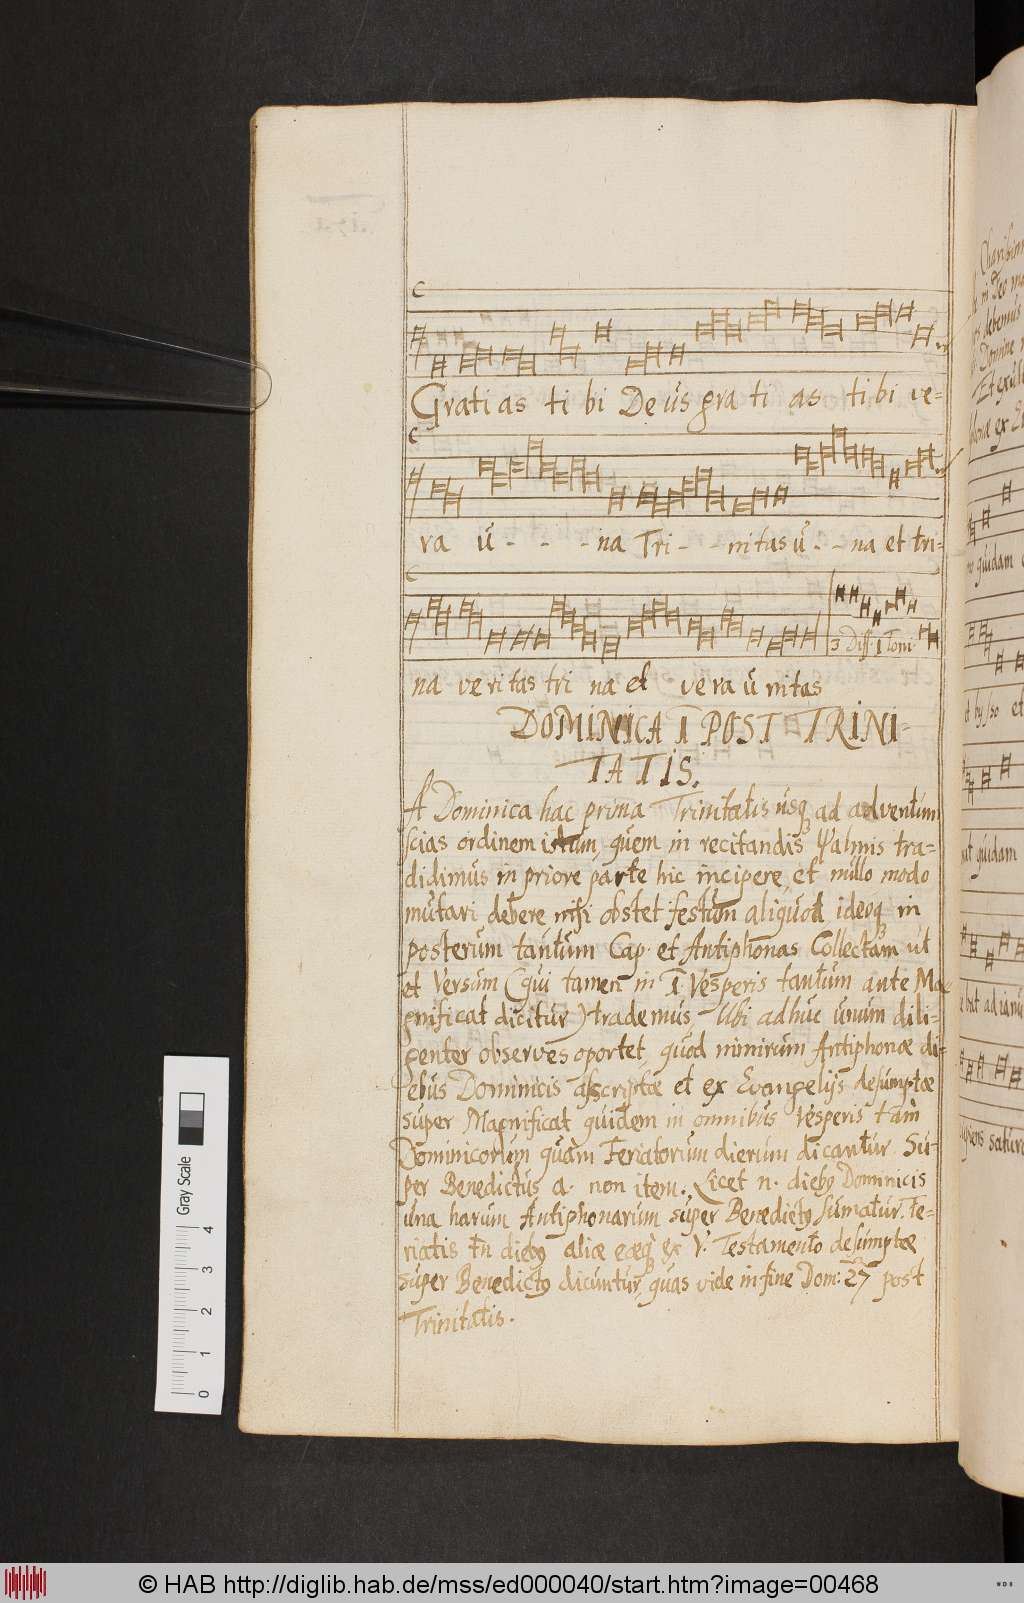 Gratias tibi Deus gratias tibi ve-
ra u - - - na Tri - - nitas u - - na et tri-
3 Diff. 1 Toni
na veritas trina et vera unitas
DOMINICA I POST TRINI-
TATIS.
A Dominica hac prima Trinitatis usq ad adventum
scias ordinem istum, quem in recitandis Psalmis tra-
didimus in priore parte hic incipere, et nullo modo
mutari debere nisi obstet festum aliquod, ideoq in
posterum tantum Cap. et Antiphonas Collectam ut
et Versum (qui tamen in I Vesperis tantum ante Ma-
gnificat dicitur) trademus, Ubi adhuc unum dili-
genter observes oportet, quod nimirum Antiphonæ di-
ebus Dominicis asscriptæ et ex Evangelijs desumptæ
super Magnificat quidem in omnibus Vesperis tam
Dominicorum quàm Feriatorum dierum dicantur. Su-
per Benedictus a. non item. Licet n. dieb9 Dominicis
una harum Antiphonarum super Benedict9 sumatur. fe-
riatis tn dieb9 aliæ eæq ex V. Testamento desumptæ
super Benedict9 dicuntur, quas vide in fine Dom: 27 post
Trinitatis.
Gray Scale
0 1 2 3 4
© HAB http://diglib.hab.de/mss/ed000040/start.htm?image=00468